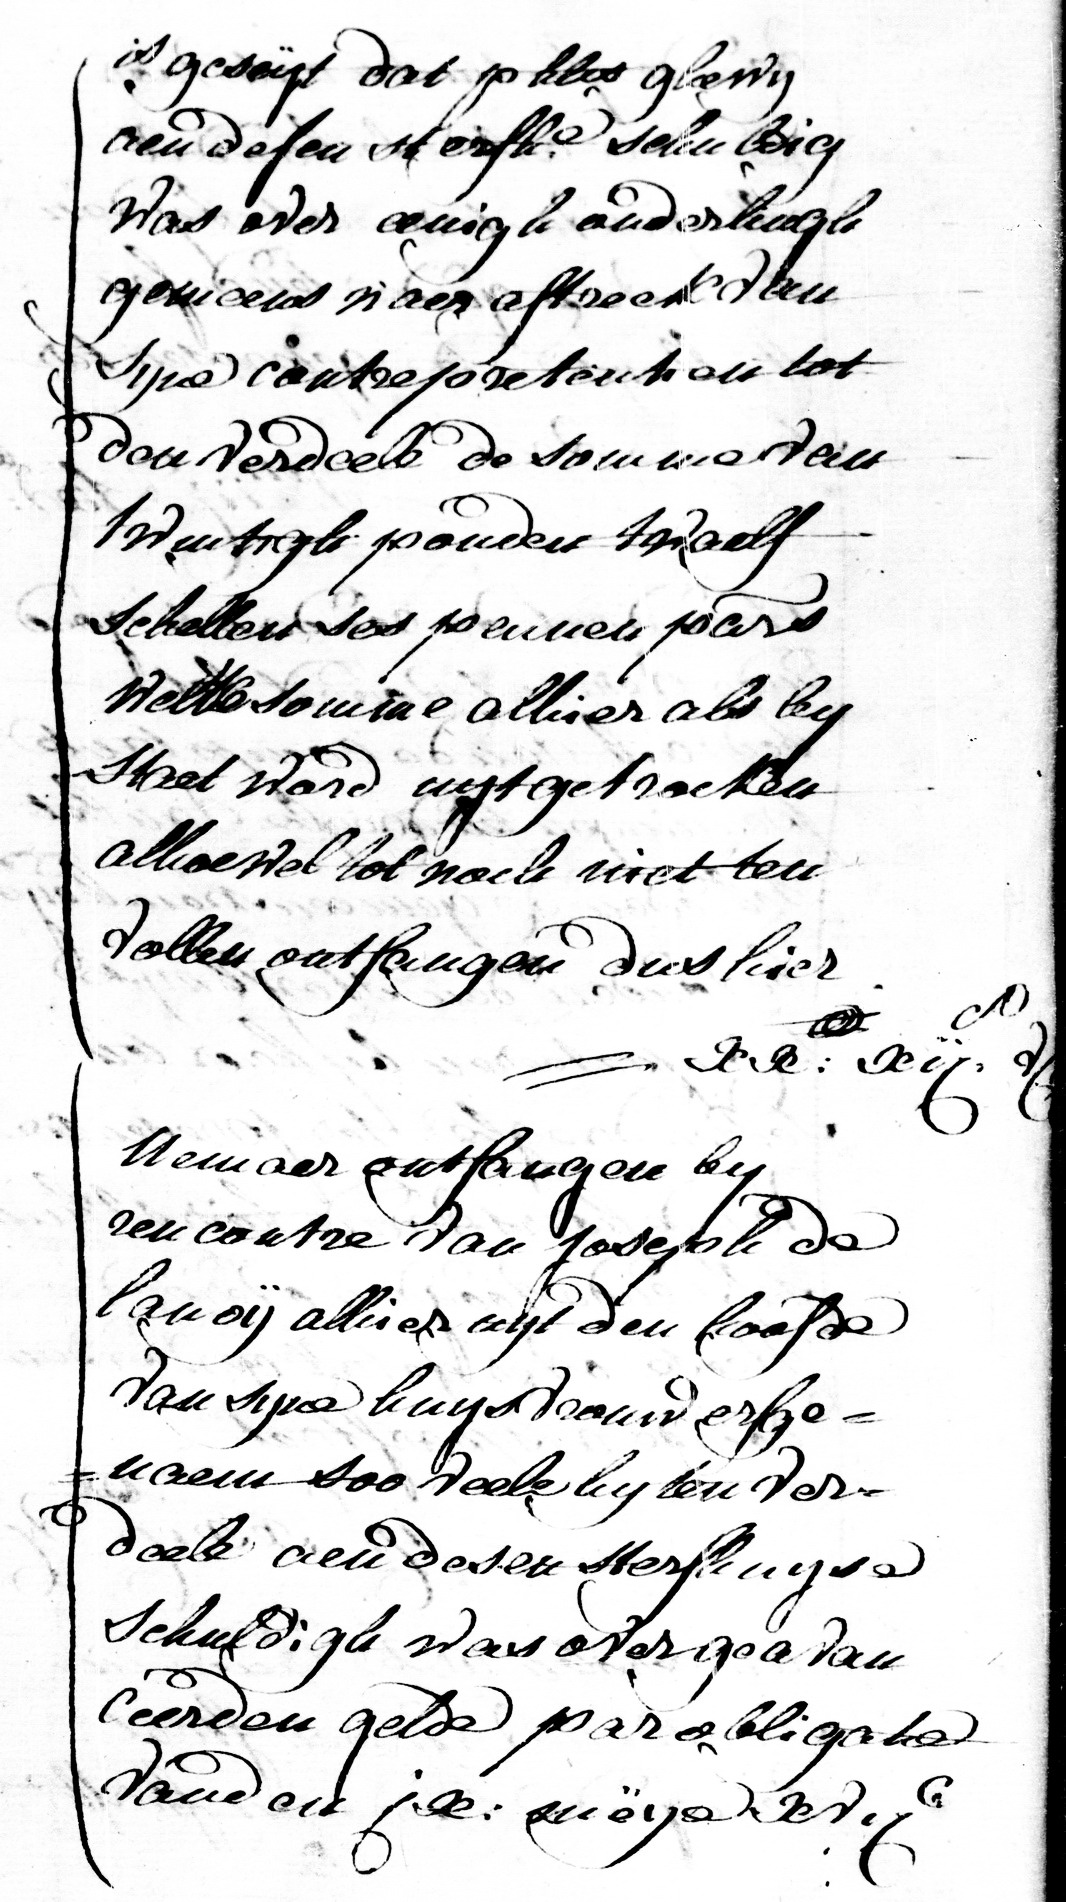 is geseijt dat p klus glorij
aen desen sterfh:e schuldig
was over eenigh onderlingh
gemeens naer aftreck van
syne contrepretentien tot
den verdeele de somme van
twintigh ponden twaelf
schellen ses pennen pars
welke somme alhier als by
staet word uytgetrocken
alhoewel tot noch niet ten
vollen ontfangen dus hier
xx: xij. v
Item aer ontfangen by
rencontre van joseph de
lanoij alhier uyt den hoofde
van syne huysvrouw erfge=
=naem soo veele hy ten ver=
deele aen desen sterfhuyse
schuldigh was over geavan
ceerden gelde par obligatie
vanden jx: meye xvij c